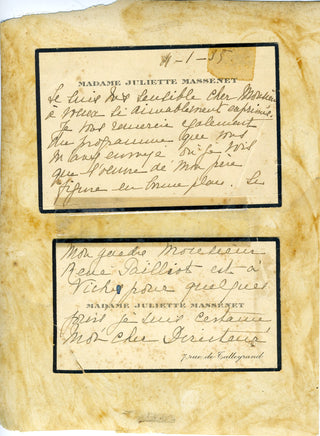 4-1-35
MADAME JULIETTE MASSENET
Je suis très sensible cher Monsieur
à si aimablement exprimés.
Je vous remercie également
du programme que vous
m'avez envoyé où je vois
que l'œuvre de mon père
figure en bonne place. Le
Mon gendre Monsieur
René Pailliot est à
Vichy pour quelques
MADAME JULIETTE MASSENET
jours je suis certaine
mon cher
7, rue de Talleyrand